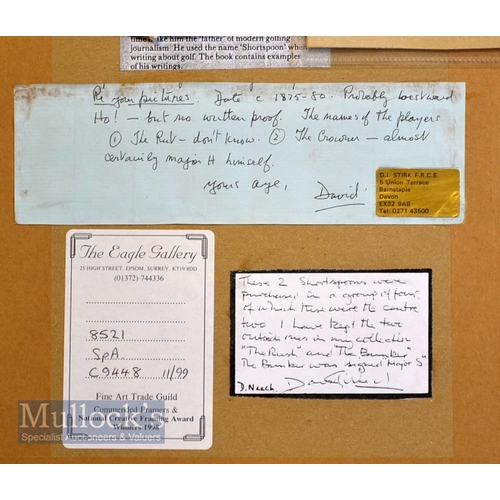 time. like him the 'father' of modern golfing
journalism. He used the name 'Shortspoon' when
writing about golf. The book contains examples
of his writings.
Re your pictures. Date c 1875-80. Probably Westward
Ho! – but no written proof. The names of the players
① The Rut – don't know. ② The Crowner – almost
certainly Major H himself.
Yours aye,
David
D.I. STIRK F.R.C.S.
5 Union Terrace
Barnstaple
Devon
EX32 9AB
Tel: 0271 43500
The Eagle Gallery
25 HIGH STREET, EPSOM, SURREY. KT19 8DD
(01372) 744336
8521
SpA
C9448 11/99
Fine Art Trade Guild
Commended Framers &
National Creative Framing Award
Winners 1998
These 2 Shortspoons were
purchased in a group of four
of which these were the centre
two. I have kept the two
outside ones in my collection
"The Rush" and "The Bunker"
The Bunker was signed Major S"
D. Neech.
Mullock's
Specialist Auctioneers & Valuers